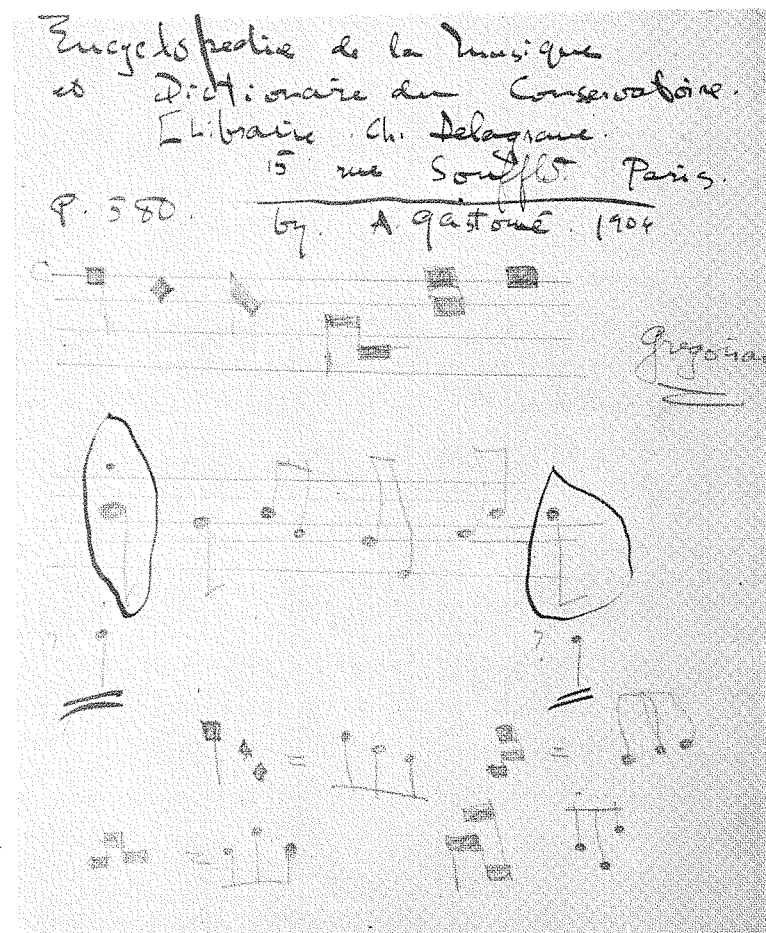 Encyclopedie de la Musique
et Dictionaire du Conservatoire.
[Libraire Ch. Delagrave.
15 rue Soufflot Paris.
P. 580
by. A Gastoué. 1904
Gregorian
?
?
=
=
=